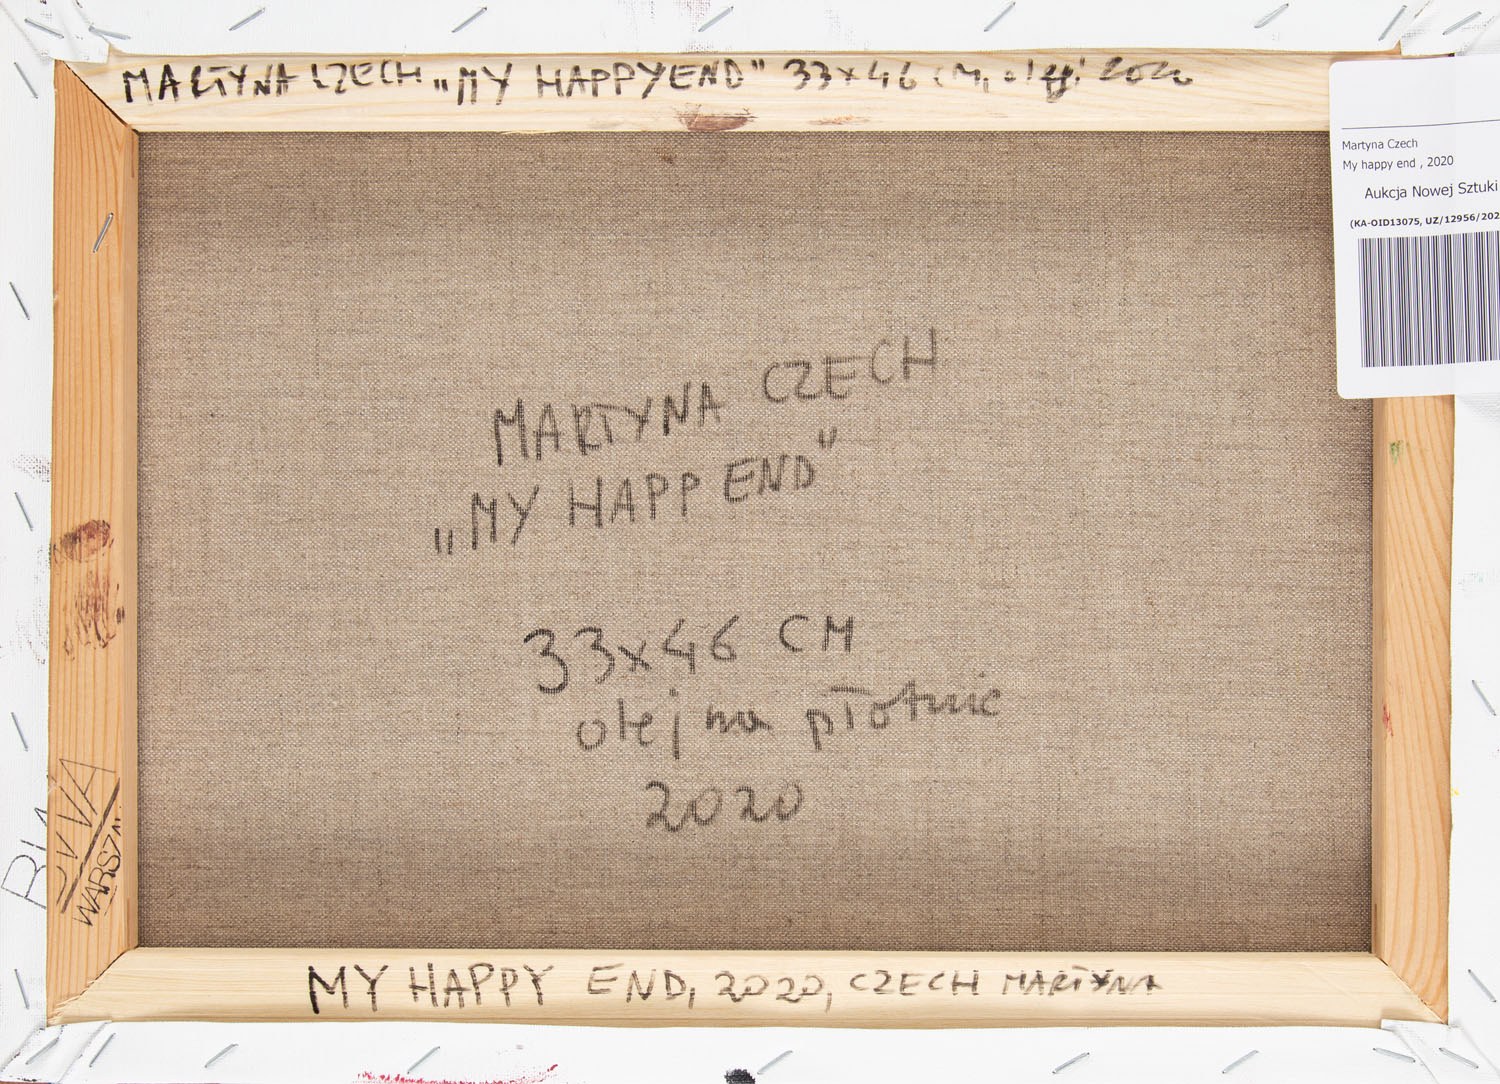 MARTYNA CZECH „MY HAPPYEND" 33x46 CM, olej 2020
Martyna Czech
My happy end , 2020
Aukcja Nowej Sztuki
(KA-OID13075, UZ/12956/202
MARTYNA CZECH
„MY HAPP END"
33x46 CM
olej na płótnie
2020
WARSZ
MY HAPPY END, 2020, CZECH MARTYNA